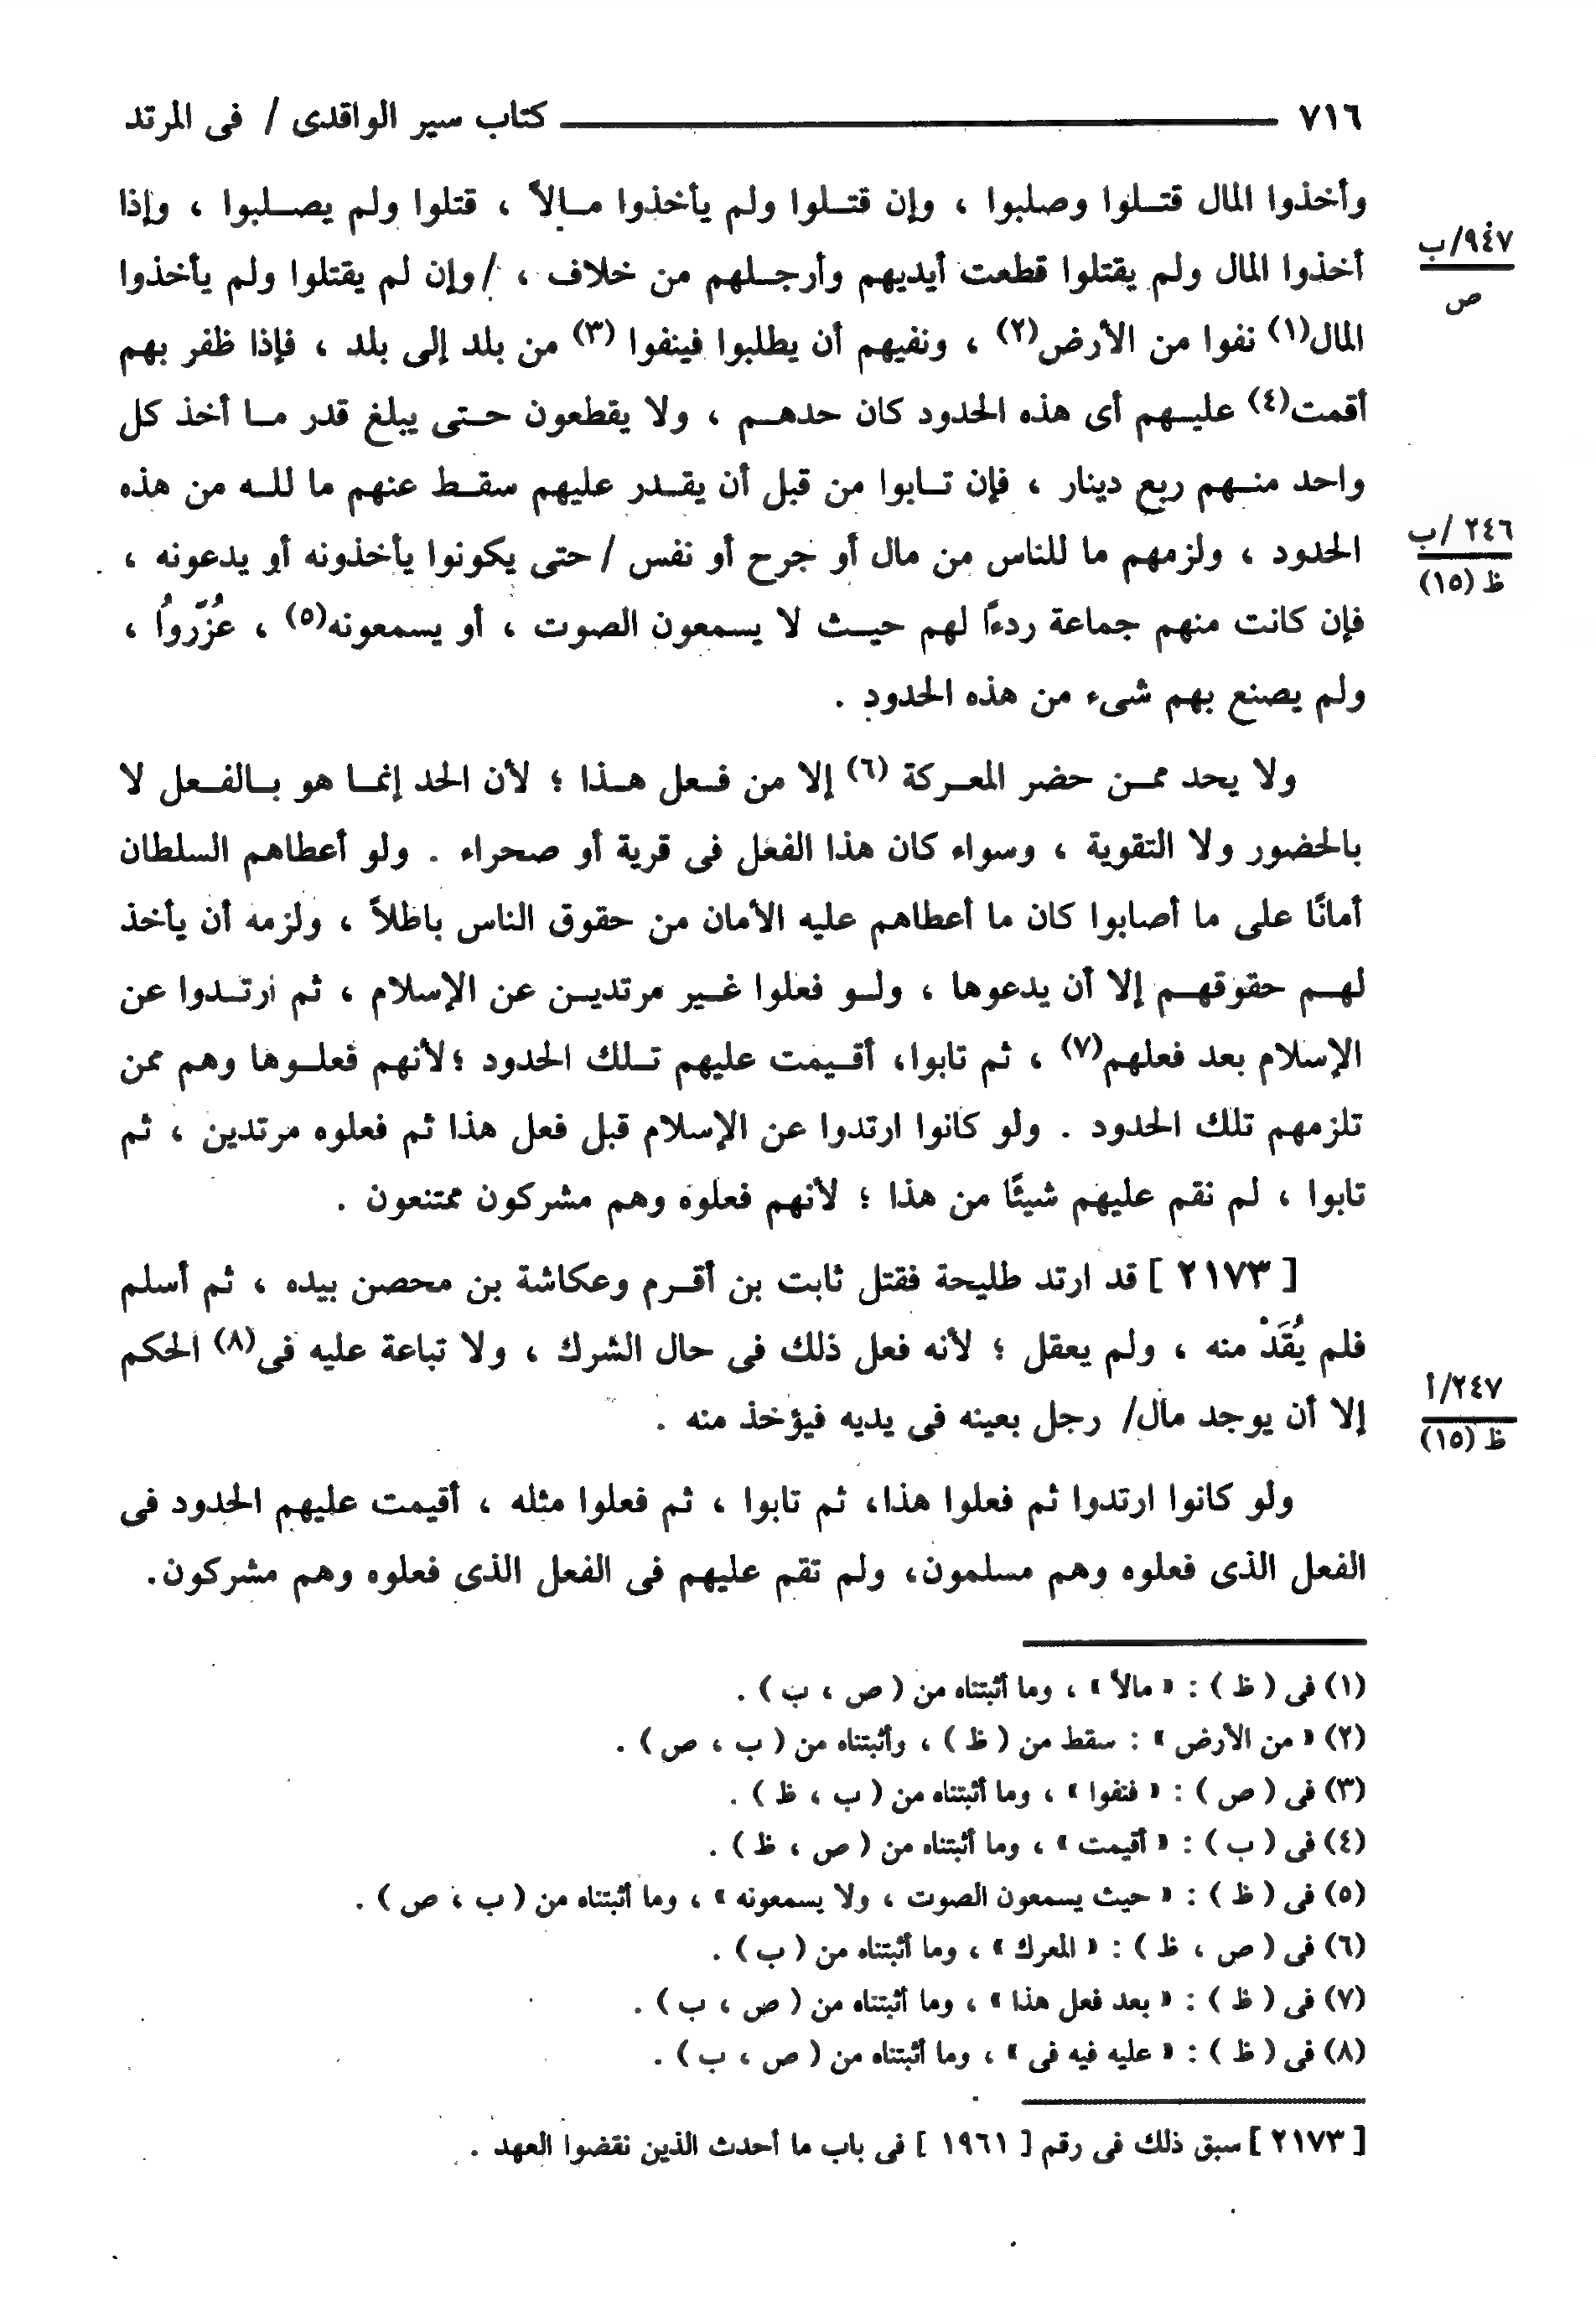 ٧١٦ كتاب سير الواقدى / فى المرتد
وأخذوا المال قتلوا وصلبوا ، وإن قتلوا ولم يأخذوا مالاً ، قتلوا ولم يصلبوا ، وإذا
٩٤٧/ب
ص
أخذوا المال ولم يقتلوا قطعت أيديهم وأرجلهم من خلاف ، /وإن لم يقتلوا ولم يأخذوا
المال(١) نفوا من الأرض(٢) ، ونفيهم أن يطلبوا فينفوا (٣) من بلد إلى بلد ، فإذا ظفر بهم
أقمت(٤) عليهم أى هذه الحدود كان حدهم ، ولا يقطعون حتى يبلغ قدر ما أخذ كل
واحد منهم ربع دينار ، فإن تابوا من قبل أن يقدر عليهم سقط عنهم ما لله من هذه
٢٤٦ /ب
ظ (١٥)
الحدود ، ولزمهم ما للناس من مال أو جرح أو نفس /حتى يكونوا يأخذونه أو يدعونه ،
فإن كانت منهم جماعة ردءاً لهم حيث لا يسمعون الصوت ، أو يسمعونه(٥) ، عُزِّرواُ ،
ولم يصنع بهم شىء من هذه الحدود .
ولا يحد ممن حضر المعركة (٦) إلا من فعل هذا ؛ لأن الحد إنما هو بالفعل لا
بالحضور ولا التقوية ، وسواء كان هذا الفعل فى قرية أو صحراء . ولو أعطاهم السلطان
أمانًا على ما أصابوا كان ما أعطاهم عليه الأمان من حقوق الناس باطلاً ، ولزمه أن يأخذ
لهم حقوقهم إلا أن يدعوها ، ولو فعلوا غير مرتدين عن الإسلام ، ثم ارتدوا عن
الإسلام بعد فعلهم(٧) ، ثم تابوا، أقيمت عليهم تلك الحدود ؛لأنهم فعلوها وهم ممن
تلزمهم تلك الحدود . ولو كانوا ارتدوا عن الإسلام قبل فعل هذا ثم فعلوه مرتدين ، ثم
تابوا ، لم نقم عليهم شيئًا من هذا ؛ لأنهم فعلوه وهم مشركون ممتنعون .
[ ٢١٧٣ ] قد ارتد طليحة فقتل ثابت بن أقرم وعكاشة بن محصن بيده ، ثم أسلم
فلم يُقَدْ منه ، ولم يعقل ؛ لأنه فعل ذلك فى حال الشرك ، ولا تباعة عليه فى(٨) الحكم
٢٤٧/أ
ظ (١٥)
إلا أن يوجد مال/ رجل بعينه فى يديه فيؤخذ منه .
ولو كانوا ارتدوا ثم فعلوا هذا، ثم تابوا ، ثم فعلوا مثله ، أقيمت عليهم الحدود فى
الفعل الذى فعلوه وهم مسلمون، ولم تقم عليهم فى الفعل الذى فعلوه وهم مشركون.
(١) فى ( ظ ) : « مالاً » ، وما أثبتناه من ( ص ، ب ) .
(٢) « من الأرض » : سقط من ( ظ ) ، وأثبتناه من ( ب ، ص ) .
(٣) فى ( ص ) : « فنفوا » ، وما أثبتناه من ( ب ، ظ ) .
(٤) فى ( ب ) : « أقيمت » ، وما أثبتناه من ( ص ، ظ ) .
(٥) فى ( ظ ) : « حيث يسمعون الصوت ، ولا يسمعونه » ، وما أثبتناه من ( ب ، ص ) .
(٦) فى ( ص ، ظ ) : « المعرك » ، وما أثبتناه من ( ب ) .
(٧) فى ( ظ ) : « بعد فعل هذا » ، وما أثبتناه من ( ص ، ب ) .
(٨) فى ( ظ ) : « عليه فيه فى » ، وما أثبتناه من ( ص ، ب ) .
[ ٢١٧٣ ] سبق ذلك فى رقم [ ١٩٦١ ] فى باب ما أحدث الذين نقضوا العهد .